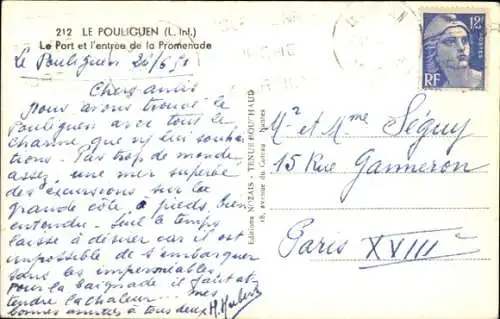 212 LE POULIGUEN (L. Inf.)
Le Port et l'entrée de la Promenade
Le Pouliguen 26/6/51
Chers amis
Nous avons trouvé le
Pouliguen avec tous le
charme que n/ lui souhai
tions. Pas trop de monde
assez, une mer superbe
des excursions sur la
grande côte à pieds, bien
entendu. Seul le temps
laisse à désirer car il est
impossible de s'embarquer
sans les imperméables.
Pour la baignade il faut at
tendre la chaleur... mes
bonnes amitiés à tous deux
Editions NOZAIS - TENUE BOU'HAUD
18, avenue du Coteau Nantes
12F
POSTES
RF
Mr et Mme Séguy
15 Rue Ganneron
Paris XVIIIe